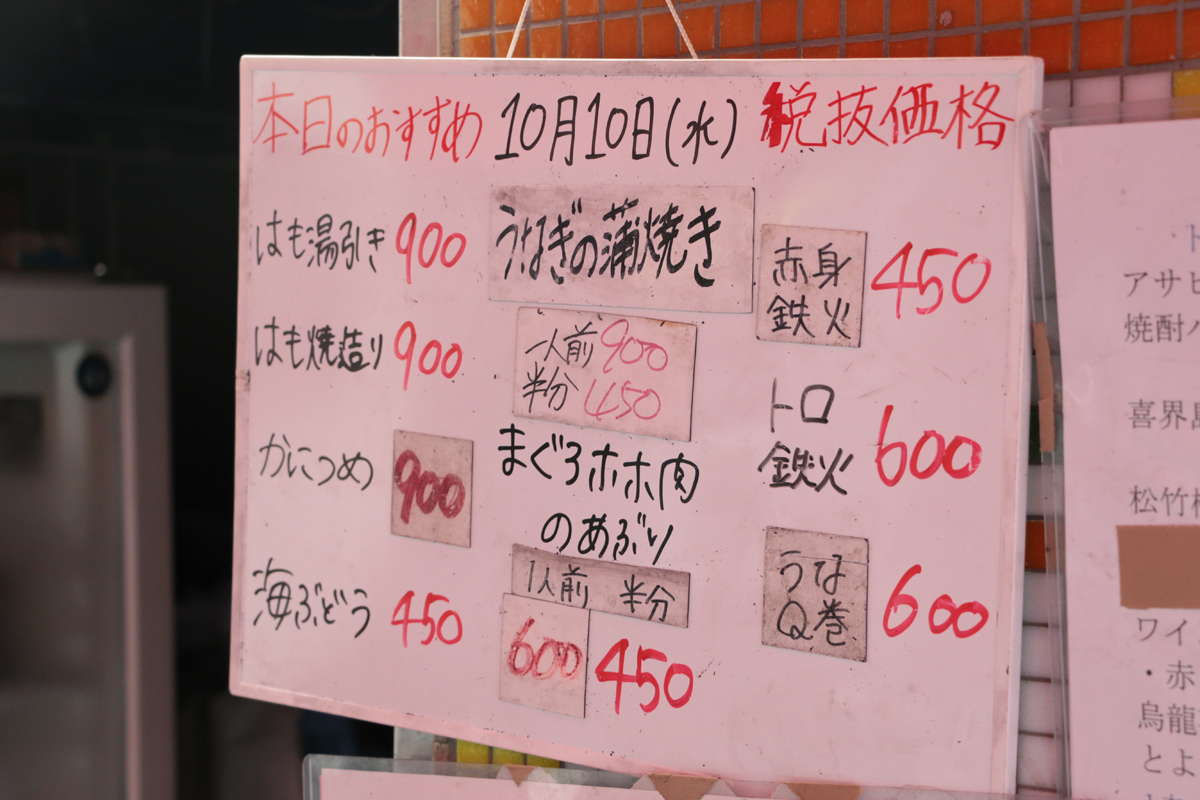 本日のおすすめ 10月10日(水) 税抜価格
はも湯引き 900
はも焼造り 900
かにつめ 900
海ぶどう 450
うなぎの蒲焼き
一人前 900
半分 450
まぐろホホ肉
のあぶり
1人前 半分
600 450
赤身
鉄火 450
トロ
鉄火 600
うな
Q巻 600
アサヒ
焼酎
喜界
松竹梅
ワイ
・赤
烏龍
とよ